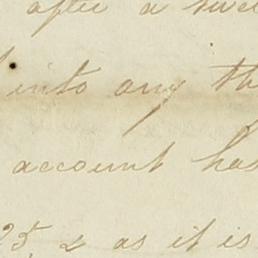 after a
into any
account has
25, & as it is